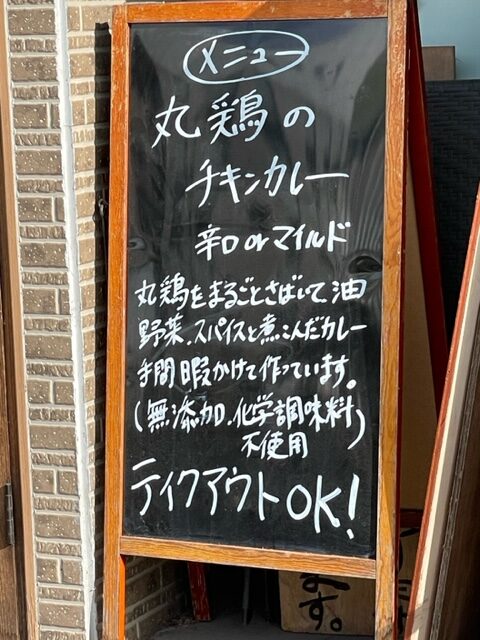 メニュー
丸鶏の
チキンカレー
辛口orマイルド
丸鶏をまるごとさばいて油
野菜、スパイスと煮こんだカレー
手間暇かけて作っています。
(無添加、化学調味料)
不使用
テイクアウトOK!
ます。